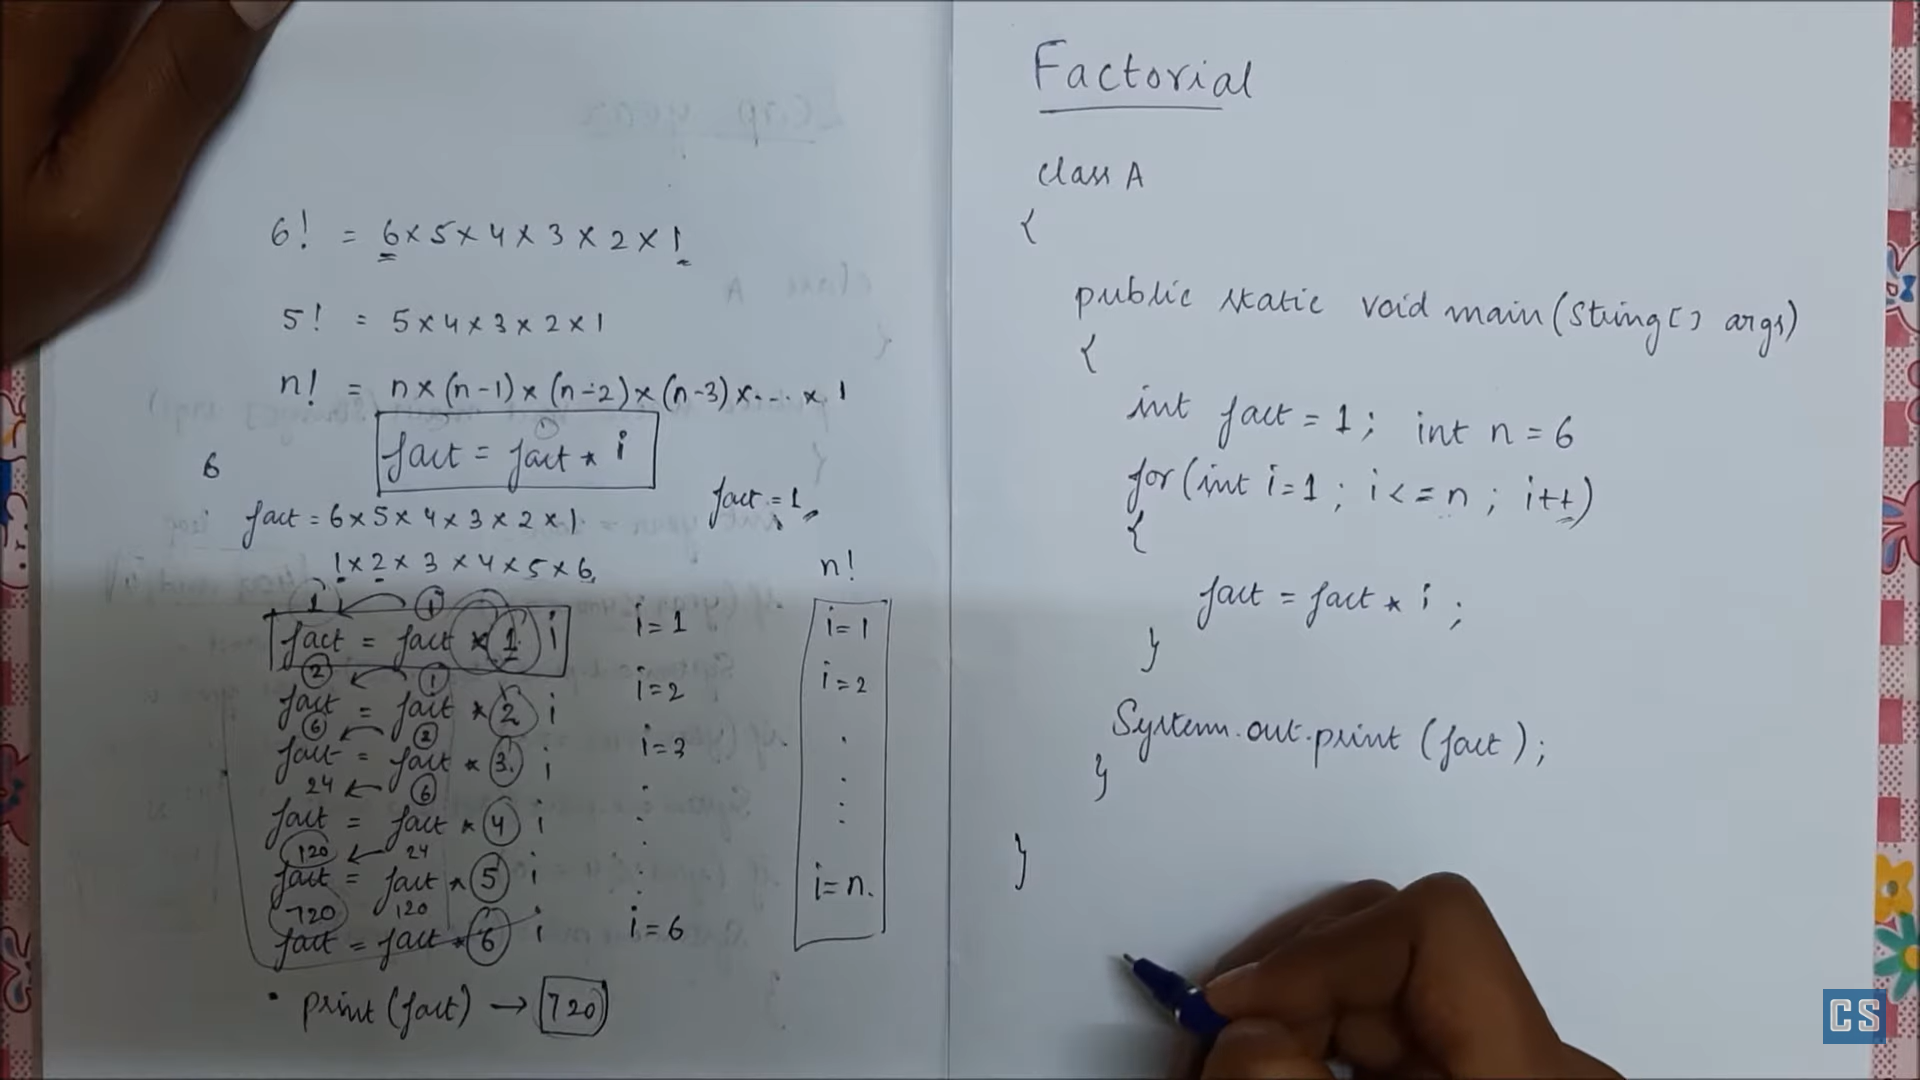 6! = 6 × 5 × 4 × 3 × 2 × 1
5! = 5 × 4 × 3 × 2 × 1
n! = n × (n-1) × (n-2) × (n-3) × ... × 1
fact = fact * i
6
fact = 1
fact = 6 × 5 × 4 × 3 × 2 × 1
1 × 2 × 3 × 4 × 5 × 6
n!
1 1
fact = fact * 1 i i=1 i=1
2 1
fact = fact * 2 i i=2 i=2
6 2
fact = fact * 3 i i=3 .
24 6 . .
fact = fact * 4 i . :
120 24 .
fact = fact * 5 i : i=n.
720 120
fact = fact * 6 i i=6
• print(fact) → 720
Factorial
class A
{
public static void main(String[] args)
{
int fact = 1; int n = 6
for(int i=1; i<=n; i++)
{
fact = fact * i ;
}
System.out.print(fact);
}
}
CS